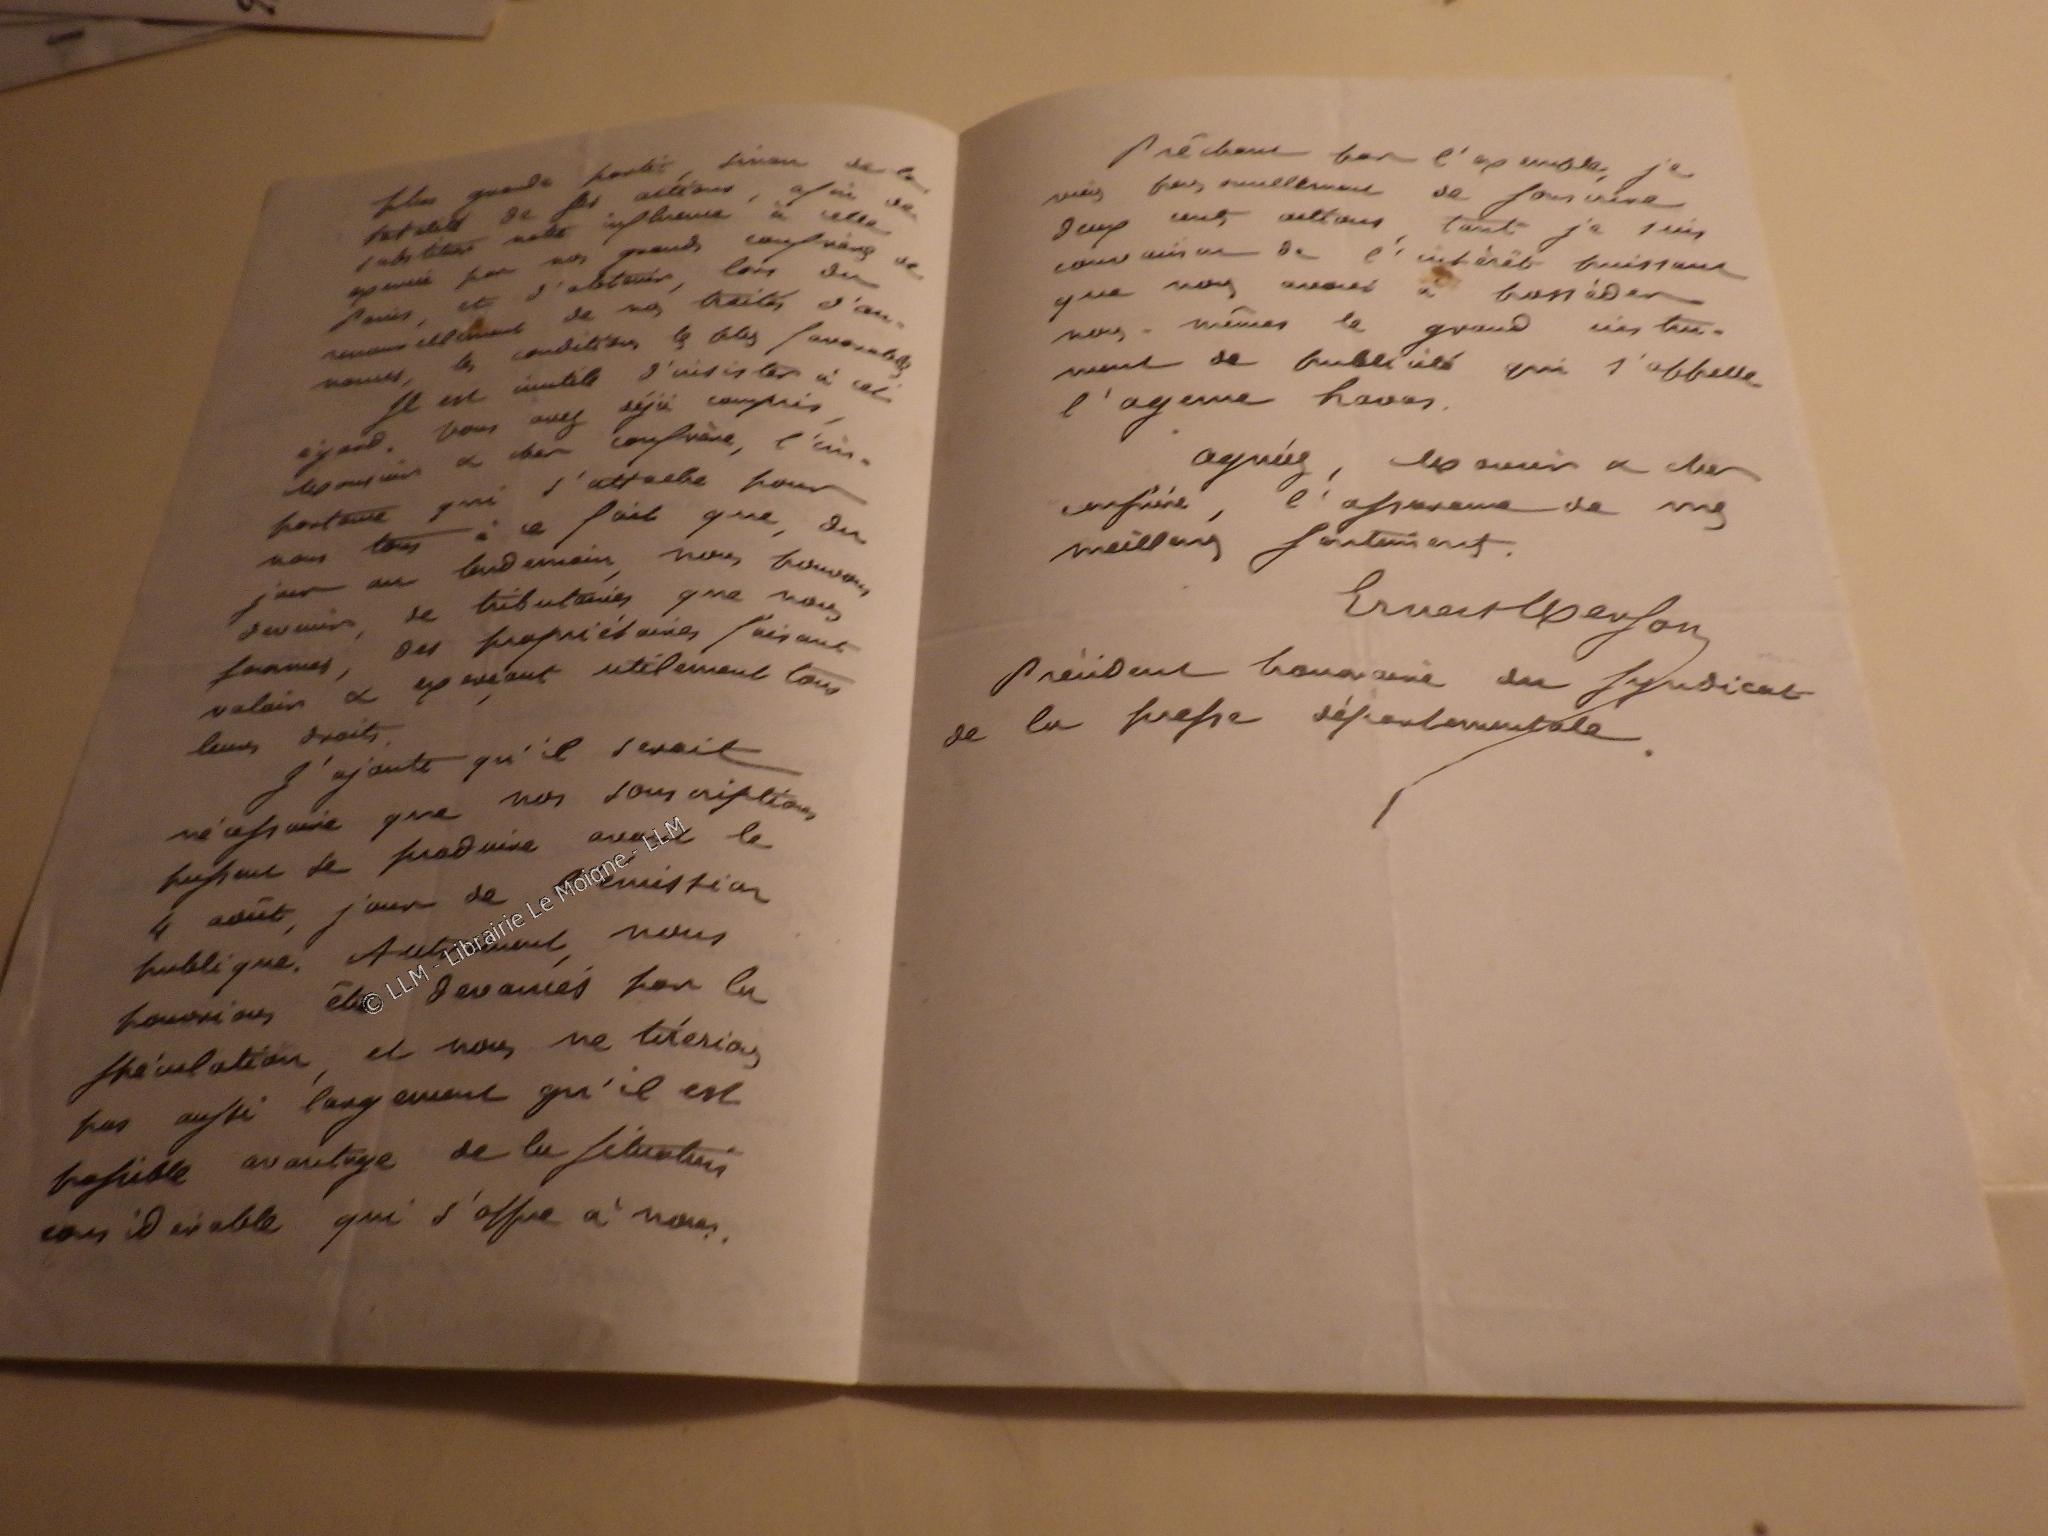 plus grande partie, sinon de la
totalité de ses actions, afin de
substituer notre influence à celle
exercée par nos grands confrères de
Paris, et d'obtenir, lors du
renouvellement de nos traités d'an-
nonces, les conditions les plus favorables.
Il est inutile d'insister à cet
égard. Vous avez déjà compris,
Monsieur & cher confrère, l'im-
portance qui s'attache pour
nous tous à ce fait que, du
jour au lendemain, nous pouvons
devenir, de tributaires que nous
sommes, des propriétaires faisant
valoir & exerçant utilement tous
leurs droits.
J'ajoute qu'il serait
nécessaire que nos souscriptions
pussent se produire avant le
4 août, jour de l'émission
publique. Autrement, nous
pourrions être devancés par la
spéculation, et nous ne tirerions
pas aussi largement qu'il est
possible avantage de la situation
considérable qui s'offre à nous.
Prêchant par l'exemple, je
viens personnellement de souscrire
deux cents actions, tant je suis
convaincu de l'intérêt puissant
que nous avons à posséder
nous-mêmes le grand instru-
ment de publicité qui s'appelle
l'agence havas.
Agréez, Monsieur & cher
confrère, l'assurance de mes
meilleurs sentiments.
Ernest Merson
Président honoraire du Syndicat
de la presse départementale.
© LLM - Librairie Le Moigne - LLM